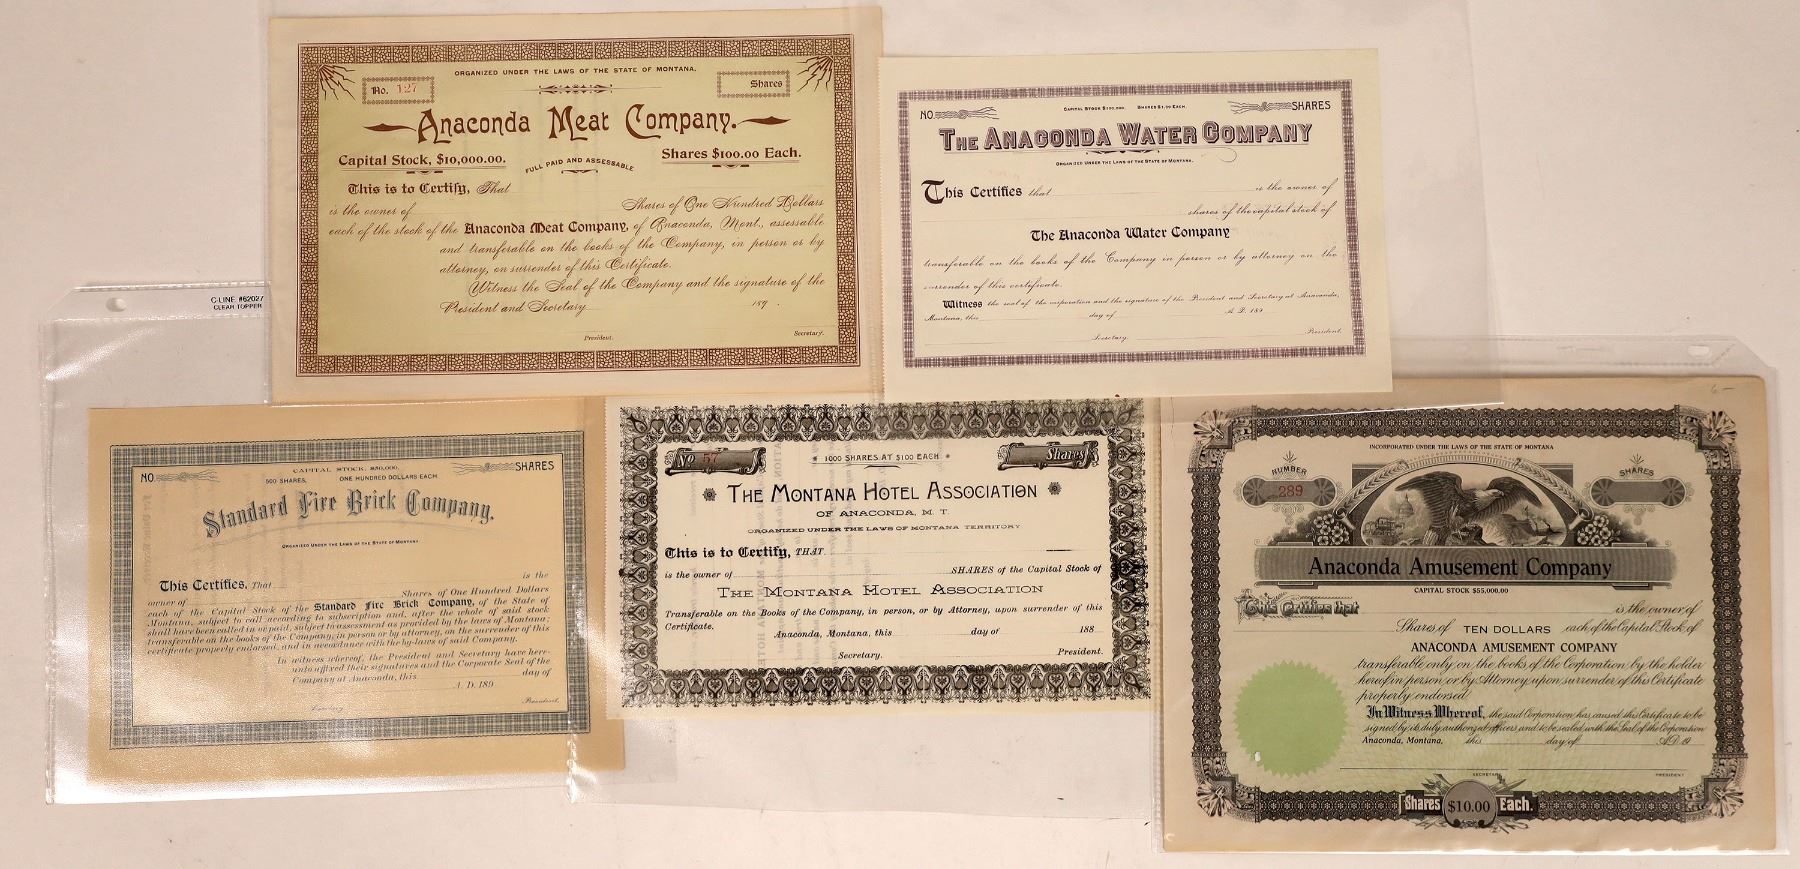 ORGANIZED UNDER THE LAWS OF THE STATE OF MONTANA.
No. 127
Shares
Anaconda Meat Company.
Capital Stock, $10,000.00.
FULL PAID AND ASSESSABLE
Shares $100.00 Each.
This is to Certify, That
is the owner of Shares of One Hundred Dollars
each of the stock of the Anaconda Meat Company, of Anaconda, Mont., assessable
and transferable on the books of the Company, in person or by
attorney, on surrender of this Certificate.
Witness the Seal of the Company and the signature of the
President and Secretary 189 .
President.
Secretary.
CAPITAL STOCK $100,000. SHARES $1.00 EACH.
NO. SHARES
THE ANACONDA WATER COMPANY
ORGANIZED UNDER THE LAWS OF THE STATE OF MONTANA.
This Certifies that is the owner of
shares of the capital stock of
The Anaconda Water Company
transferable on the books of the Company in person or by attorney on the
surrender of this certificate.
Witness the seal of the corporation and the signature of the President and Secretary at Anaconda,
Montana, this day of A.D. 189
Secretary. President.
C-LINE #62027
CLEAR TOPPER
CAPITAL STOCK, $50,000.
NO. SHARES
500 SHARES, ONE HUNDRED DOLLARS EACH.
Standard Fire Brick Company.
ORGANIZED UNDER THE LAWS OF THE STATE OF MONTANA
This Certifies, That is the
owner of Shares of One Hundred Dollars
each of the Capital Stock of the Standard Fire Brick Company, of the State of
Montana, subject to call according to subscription and, after the whole of said stock
shall have been called in or paid, subject to assessment as provided by the laws of Montana;
transferable on the books of the Company, in person or by attorney, on the surrender of this
certificate properly endorsed, and in accordance with the by-laws of said Company.
In witness whereof, the President and Secretary have here-
unto affixed their signatures and the Corporate Seal of the
Company at Anaconda, this day of
A. D. 189
Secretary President.
No 57
1000 SHARES AT $100 EACH
Shares
THE MONTANA HOTEL ASSOCIATION
OF ANACONDA, M. T.
ORGANIZED UNDER THE LAWS OF MONTANA TERRITORY
This is to Certify, THAT
is the owner of SHARES of the Capital Stock of
THE MONTANA HOTEL ASSOCIATION
Transferable on the Books of the Company, in person, or by Attorney, upon surrender of this
Certificate.
Anaconda, Montana, this day of 188
Secretary. President.
6-
INCORPORATED UNDER THE LAWS OF THE STATE OF MONTANA
NUMBER
SHARES
289
Anaconda Amusement Company
CAPITAL STOCK $55,000.00
This Certifies that is the owner of
Shares of TEN DOLLARS each of the Capital Stock of
ANACONDA AMUSEMENT COMPANY
transferable only on the books of the Corporation by the holder
hereof in person or by Attorney upon surrender of this Certificate
properly endorsed
In Witness Whereof, the said Corporation has caused this Certificate to be
signed by its duly authorized officers and to be sealed with the Seal of the Corporation
Anaconda, Montana, this day of A.D. 19
SECRETARY PRESIDENT
Shares $10.00 Each.